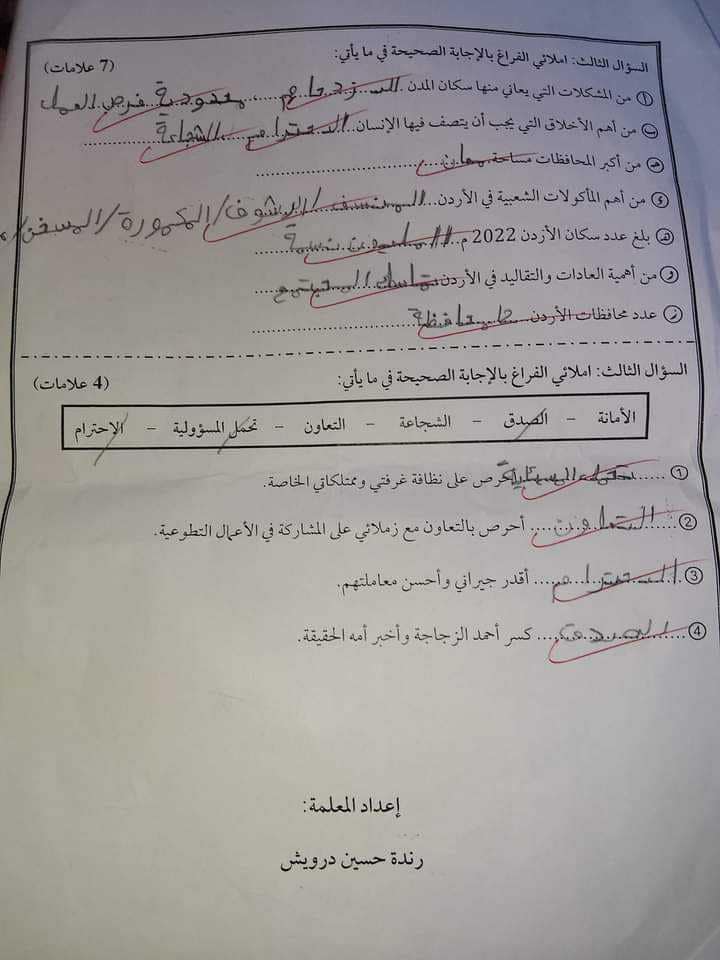 السؤال الثالث: املائي الفراغ بالإجابة الصحيحة في ما يأتي: (7 علامات)
أ من المشكلات التي يعاني منها سكان المدن الازدحام ..... محدودية فرص العمل
ب من أهم الأخلاق التي يجب أن يتصف فيها الإنسان الاحترام الشجاعة
ج من أكبر المحافظات مساحة معان
د من أهم المأكولات الشعبية في الأردن المنسف / الرشوف / المكمورة / المسخن /
هـ بلغ عدد سكان الأردن 2022 م
و من أهمية العادات والتقاليد في الأردن تماسك المجتمع
ز عدد محافظات الأردن محافظة
السؤال الثالث: املائي الفراغ بالإجابة الصحيحة في ما يأتي: (4 علامات)
الأمانة – الصدق – الشجاعة – التعاون – تحمل المسؤولية – الإحترام
1 تحمل المسؤولية أحرص على نظافة غرفتي وممتلكاتي الخاصة.
2 التعاون أحرص بالتعاون مع زملائي على المشاركة في الأعمال التطوعية.
3 الاحترام أقدر جيراني وأحسن معاملتهم.
4 الصدق كسر أحمد الزجاجة وأخبر أمه الحقيقة.
إعداد المعلمة:
رندة حسين درويش